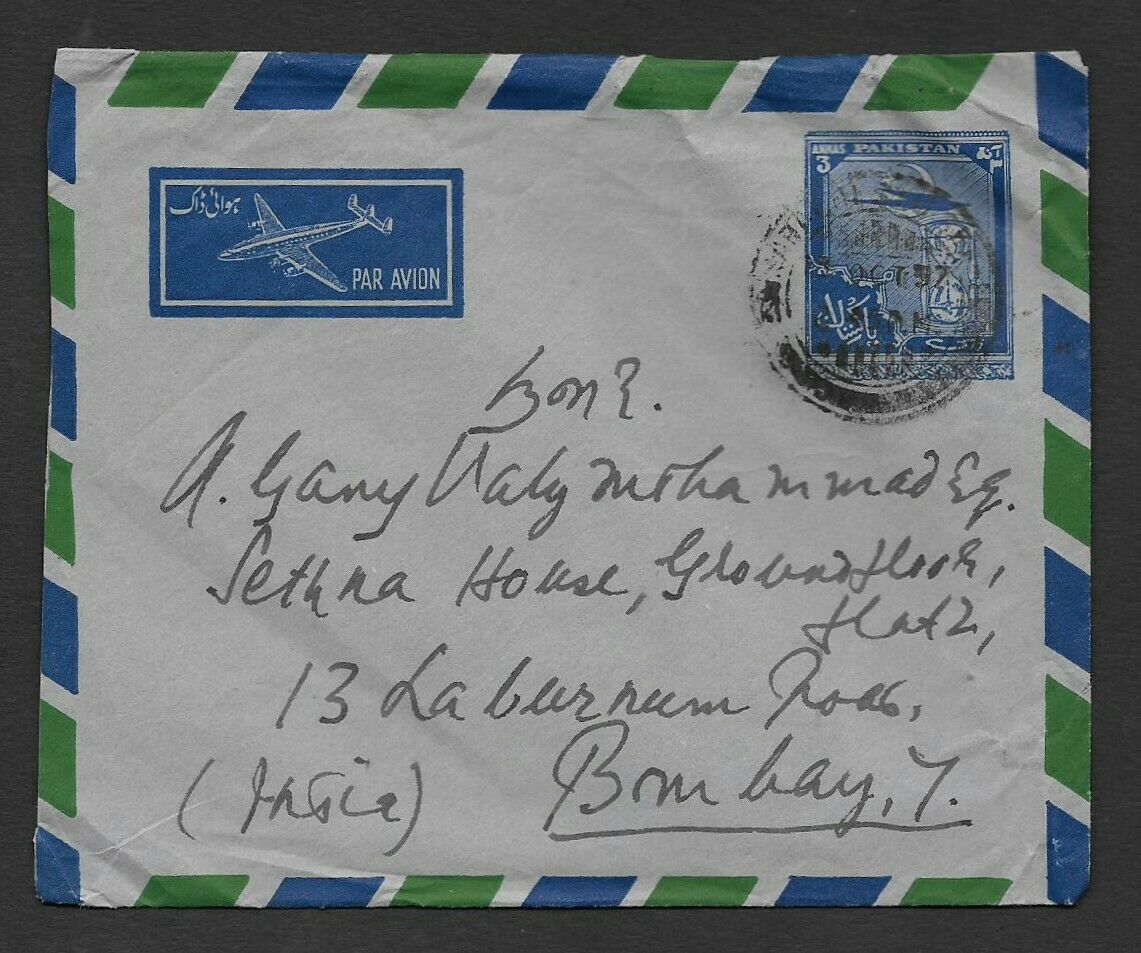 ANNAS PAKISTAN آنہ
3 ۳
ہوائی ڈاک
PAR AVION
OCT 57
پاکستان
A. Gany Valy Mohammad Esq.
Sethna House, Ground floor,
flat 2,
13 Laburnum Road,
(India) Bombay, 7.